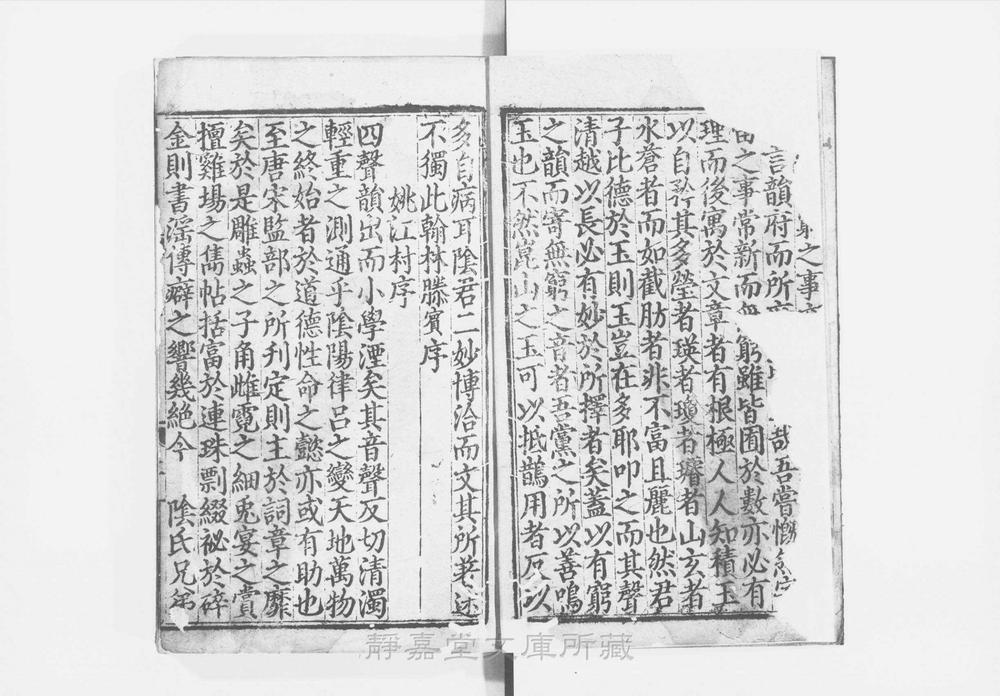 之事
言韻府而所 哉吾嘗慨
之事常新而無窮雖皆囿於數亦必有
理而後寓於文章者有根極人人知積玉
以自矜其多瑩者瑛者瓊者璿者山玄者
水蒼者而如截肪者非不富且麗也然君
子比德於玉則玉豈在多耶叩之而其聲
清越以長必有妙於所擇者矣蓋以有窮
之韻而寄無窮之音者吾黨之所以善鳴
玉也不然崑山之玉可以抵鵲用者反以
多自病耳陰君二妙博洽而文其所著述
不獨此翰林滕賓序
姚江村序
四聲韻出而小學湮矣其音聲反切清濁
輕重之測通乎陰陽律呂之變天地萬物
之終始者於道德性命之懿亦或有助也
至唐宋監部之所刋定則主於詞章之靡
矣於是雕蟲之子角雌霓之細兎宴之賞
擅雞場之雋帖括富於連珠剽綴祕於碎
金則書滛傳癖之響幾絕今 陰氏兄弟
靜嘉堂文庫所藏